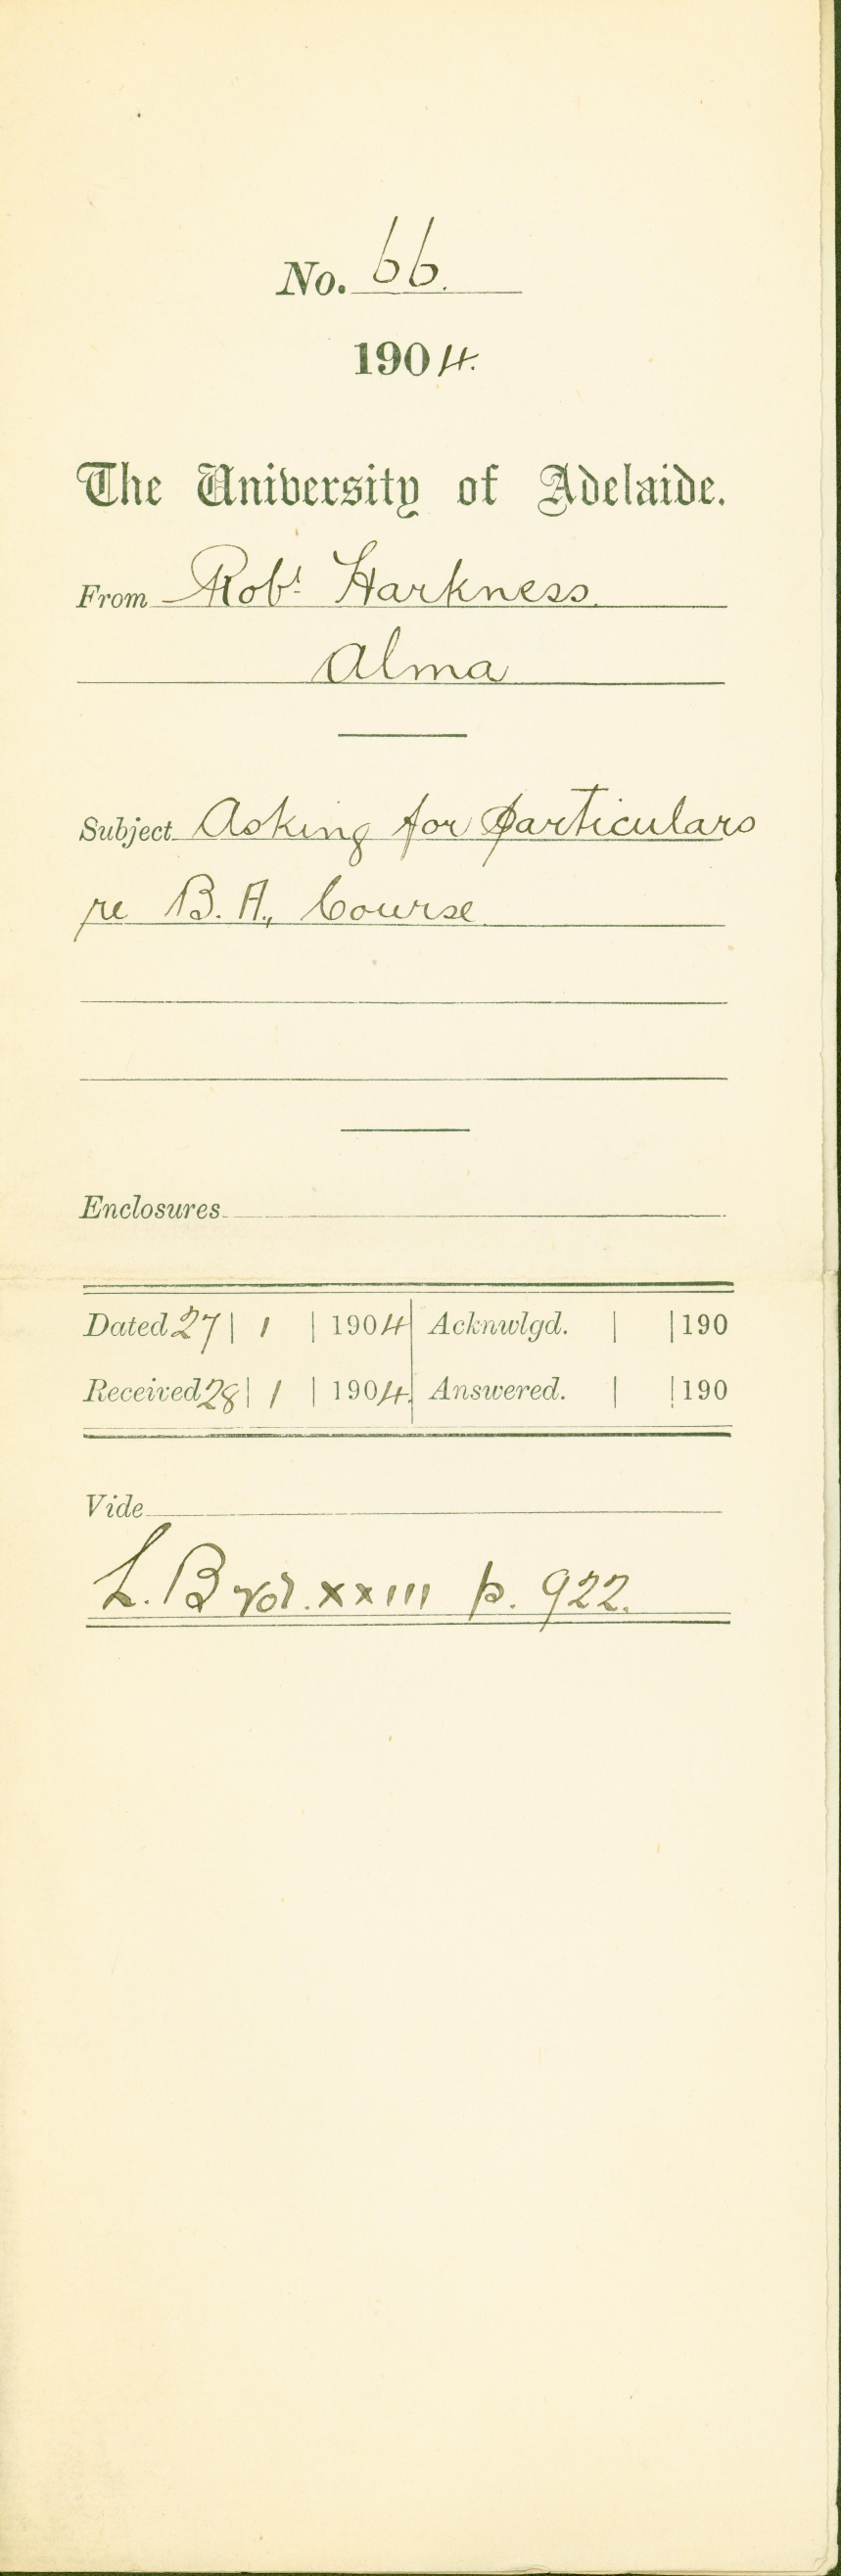 No. 66.
1904.
The University of Adelaide.
From Robt Harkness
Alma
Subject Asking for particulars
re B.A., Course
Enclosures
Dated 27 | 1 | 1904 | Acknwlgd. | | 190
Received 28 | 1 | 1904. | Answered. | | 190
Vide
L.B vol. xxiii p. 922.